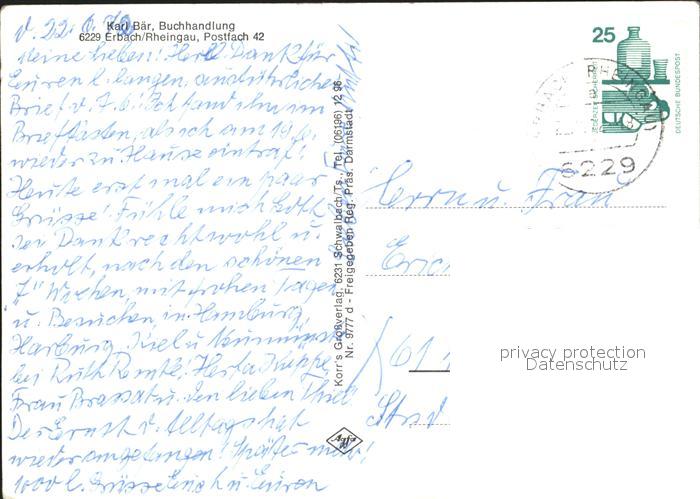 Karl Bär, Buchhandlung
6229 Erbach/Rheingau, Postfach 42
d. 22. 6.
Meine Lieben! Herzl. Dank für
Euren l. langen, ausführlichen
Brief v. 7. 6. Ich fand ihn im
Briefkasten, als ich am 19. 6.
wieder zu Hause eintraf!
Heute erst mal ein paar
Grüsse! Fühle mich Gott
sei Dank recht wohl u.
erholt, nach den schönen
"7" Wochen, mit frohen Tagen
u. Besuchen in Hamburg,
Harburg, Kiel u.
bei Ruth Herta
Frau u. den lieben
Der Ernst d. Alltags hat
wieder angefangen! Später mehr!
1000 l. Grüsse Euch u. Euren
Korr's Großverlag, 6231 Schwalbach/Ts., Tel. (06196) 12 96
Nr. 9777 d - Freigegeben Reg. Präs. Darmstadt
Agfa
25
JEDERZEIT SICHERHEIT
DEUTSCHE BUNDESPOST
6229
Herrn u. Frau
61
privacy protection
Datenschutz